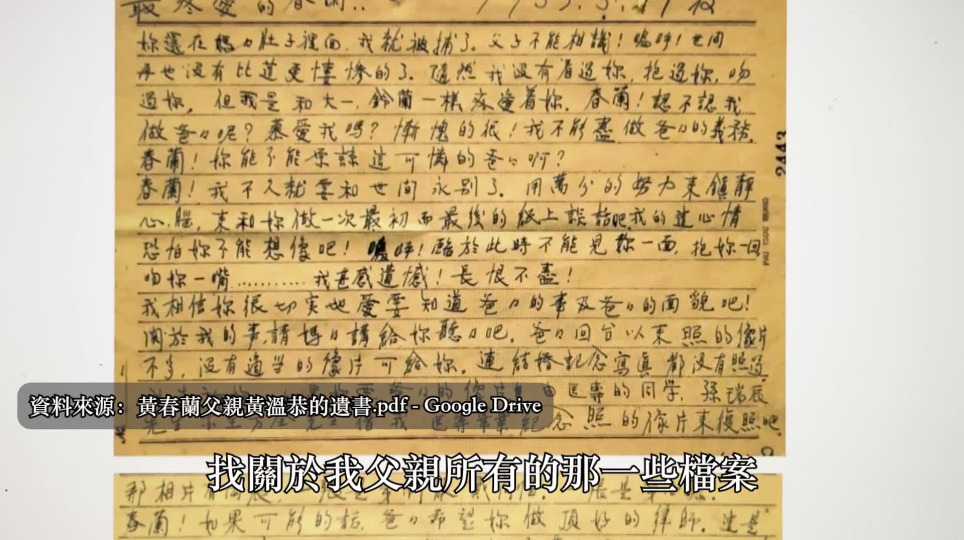 最疼愛的春蘭..
妳還在媽々肚子裡面,我就被捕了。父子不能相識!嗚呼!世間
再也沒有比這更悽慘的了。雖然我沒有看過妳,抱過妳,吻
過妳,但我是和大一、鈴蘭一樣疼愛着妳。春蘭!認不認我
做爸々呢?慕愛我嗎?慚愧的很!我不能盡做爸々的義務。
春蘭!妳能不能原諒這可憐的爸々啊?
春蘭!我不久就要和世間永別了。用萬分的努力來鎮靜
心腦,來和妳做一次最初而最後的紙上談話吧我的這心情
恐怕妳不能想像吧!嗚呼!臨於此時不能見妳一面,抱妳一回
吻妳一嘴............我甚感遺憾!長恨不盡!
我相信妳很切実地愛要知道爸々的事及爸々的面貌吧!
関於我的事請媽々講給妳聽々吧。爸々回台以來照的像片
不多,沒有適當的像片可給妳。連結婚記念寫真都沒有照過
的同学,孫瑞辰
念照的像片來復照吧
2443
資料來源:黃春蘭父親黃溫恭的遺書.pdf - Google Drive
找關於我父親所有的那一些檔案
那相片
春蘭!如果可能的話,爸々希望妳做頂好的律師。這是